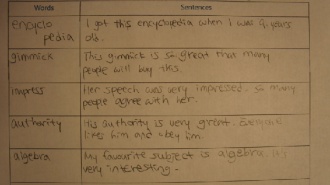 Words Sentences
encyclo I got this encyclopedia when I was 9 years
pedia old.
gimmick This gimmick is so great that many
people will buy this.
impress Her speech was very impressed, so many
people agree with her.
authority His authority is very great. Everyone
likes him and obey him.
algebra My favourite subject is algebra. It's
very interesting.